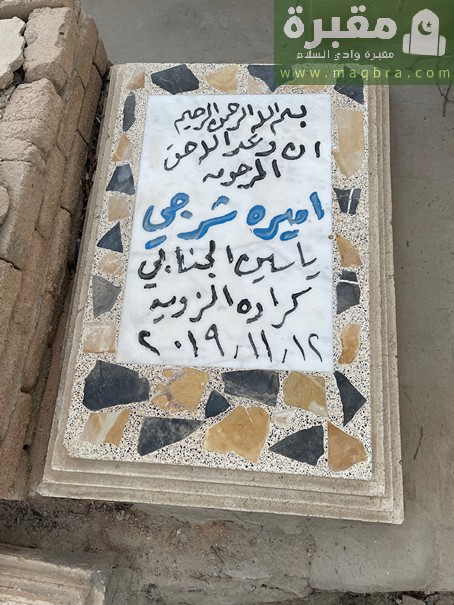 مقبرة
مقبرة وادي السلام
www.maqbra.com
بسم الله الرحمن الرحيم
ان وعد الله حق
المرحومه
اميره شرجي
ياسين الجنابي
كراده الزويه
٢٠١٩٫١١٫١٢